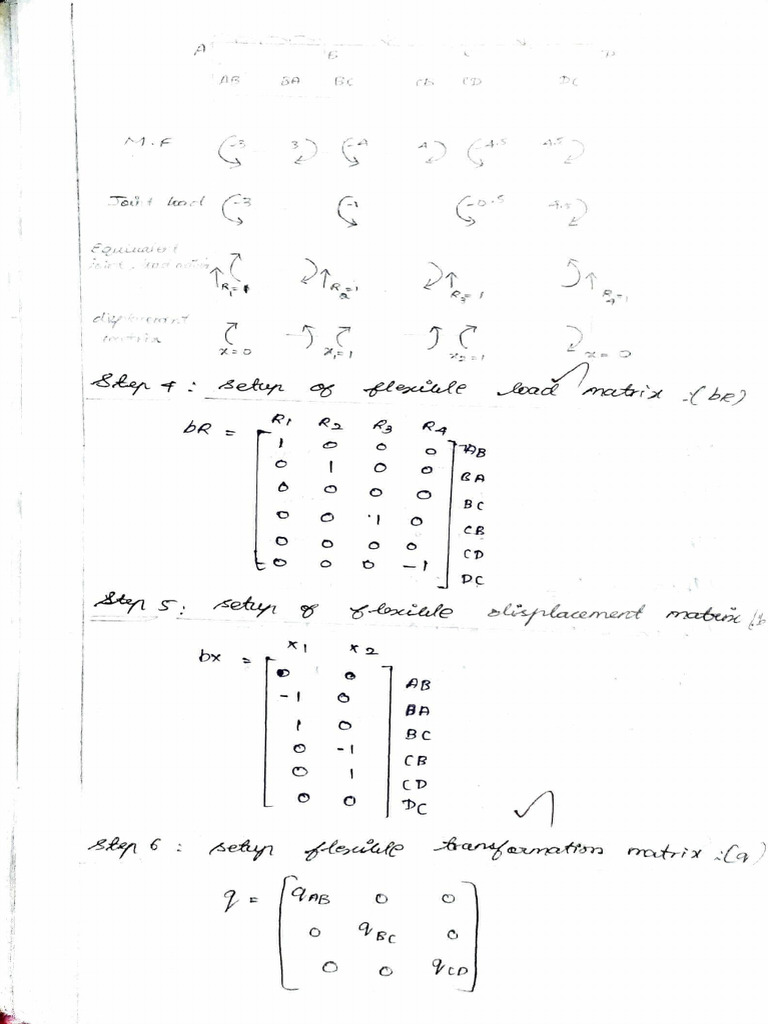 A B C D
AB BA BC CB CD DC
M.F -3 3 -4 4 -4.5 4.5
Joint load -3 -1 -0.5 4.5
Equivalent
joint, load R1=1 R2=1 R3=1 R4=1
displacement
matrix x=0 x1=1 x2=1 x=0
Step 4 : setup of flexible load matrix :(bR)
R1 R2 R3 R4
bR = 1 0 0 0 AB
0 1 0 0 BA
0 0 0 0 BC
0 0 1 0 CB
0 0 0 0 CD
0 0 0 -1 DC
Step 5 : setup of flexible displacement matrix
x1 x2
bx = 0 0 AB
-1 0 BA
1 0 BC
0 -1 CB
0 1 CD
0 0 DC
Step 6 : setup flexible transformation matrix :(q)
q = qAB 0 0
0 qBC 0
0 0 qCD